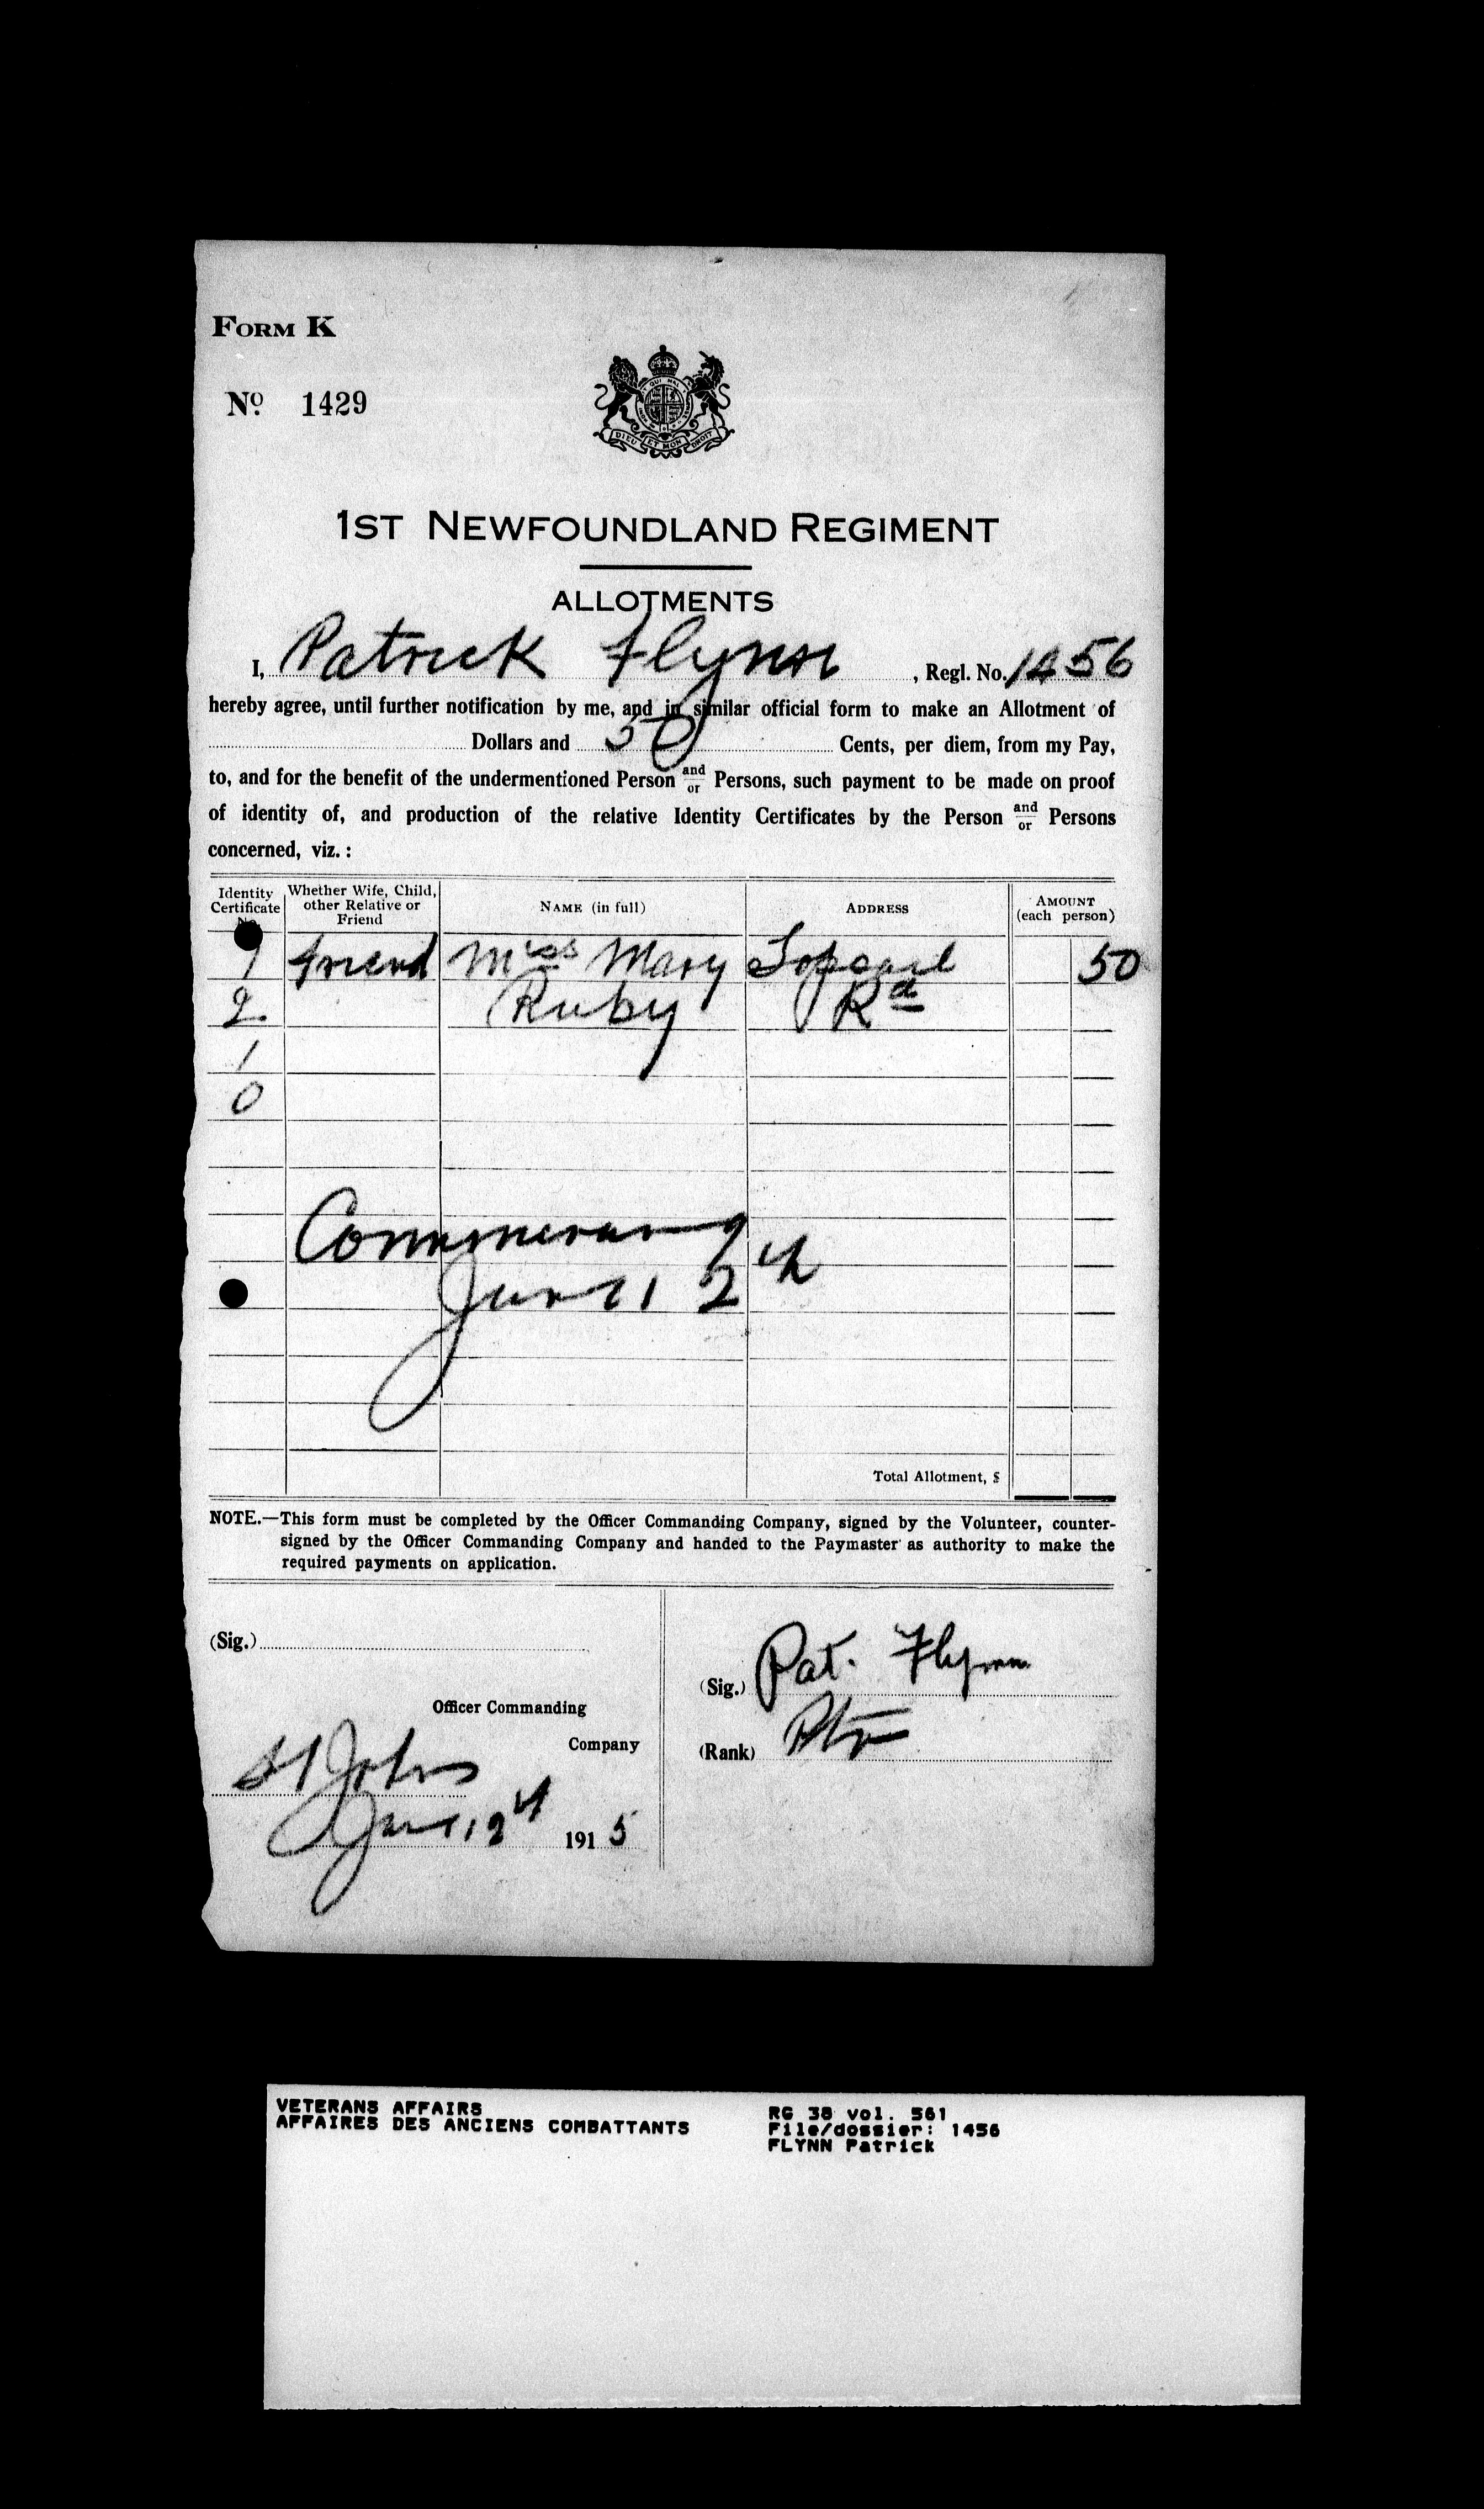 FORM K
No. 1429
DIEU ET MON DROIT
1ST NEWFOUNDLAND REGIMENT
ALLOTMENTS
I, Patrick Flynn, Regl. No. 1456
hereby agree, until further notification by me, and in similar official form to make an Allotment of
Dollars and 50 Cents, per diem, from my Pay,
to, and for the benefit of the undermentioned Person and/or Persons, such payment to be made on proof
of identity of, and production of the relative Identity Certificates by the Person and/or Persons
concerned, viz.:
Identity Certificate No. Whether Wife, Child, other Relative or Friend NAME (in full) ADDRESS AMOUNT (each person)
1 friend Miss Mary Topsail 50
2 Ruby Rd
1
0
Commencing
June 12th
Total Allotment, $
NOTE.—This form must be completed by the Officer Commanding Company, signed by the Volunteer, counter-
signed by the Officer Commanding Company and handed to the Paymaster as authority to make the
required payments on application.
(Sig.)
(Sig.) Pat. Flynn
Officer Commanding
Company
(Rank) Pte
St Johns
June 12th 1915
VETERANS AFFAIRS
AFFAIRES DES ANCIENS COMBATTANTS
RG 38 vol. 561
File/dossier: 1456
FLYNN Patrick